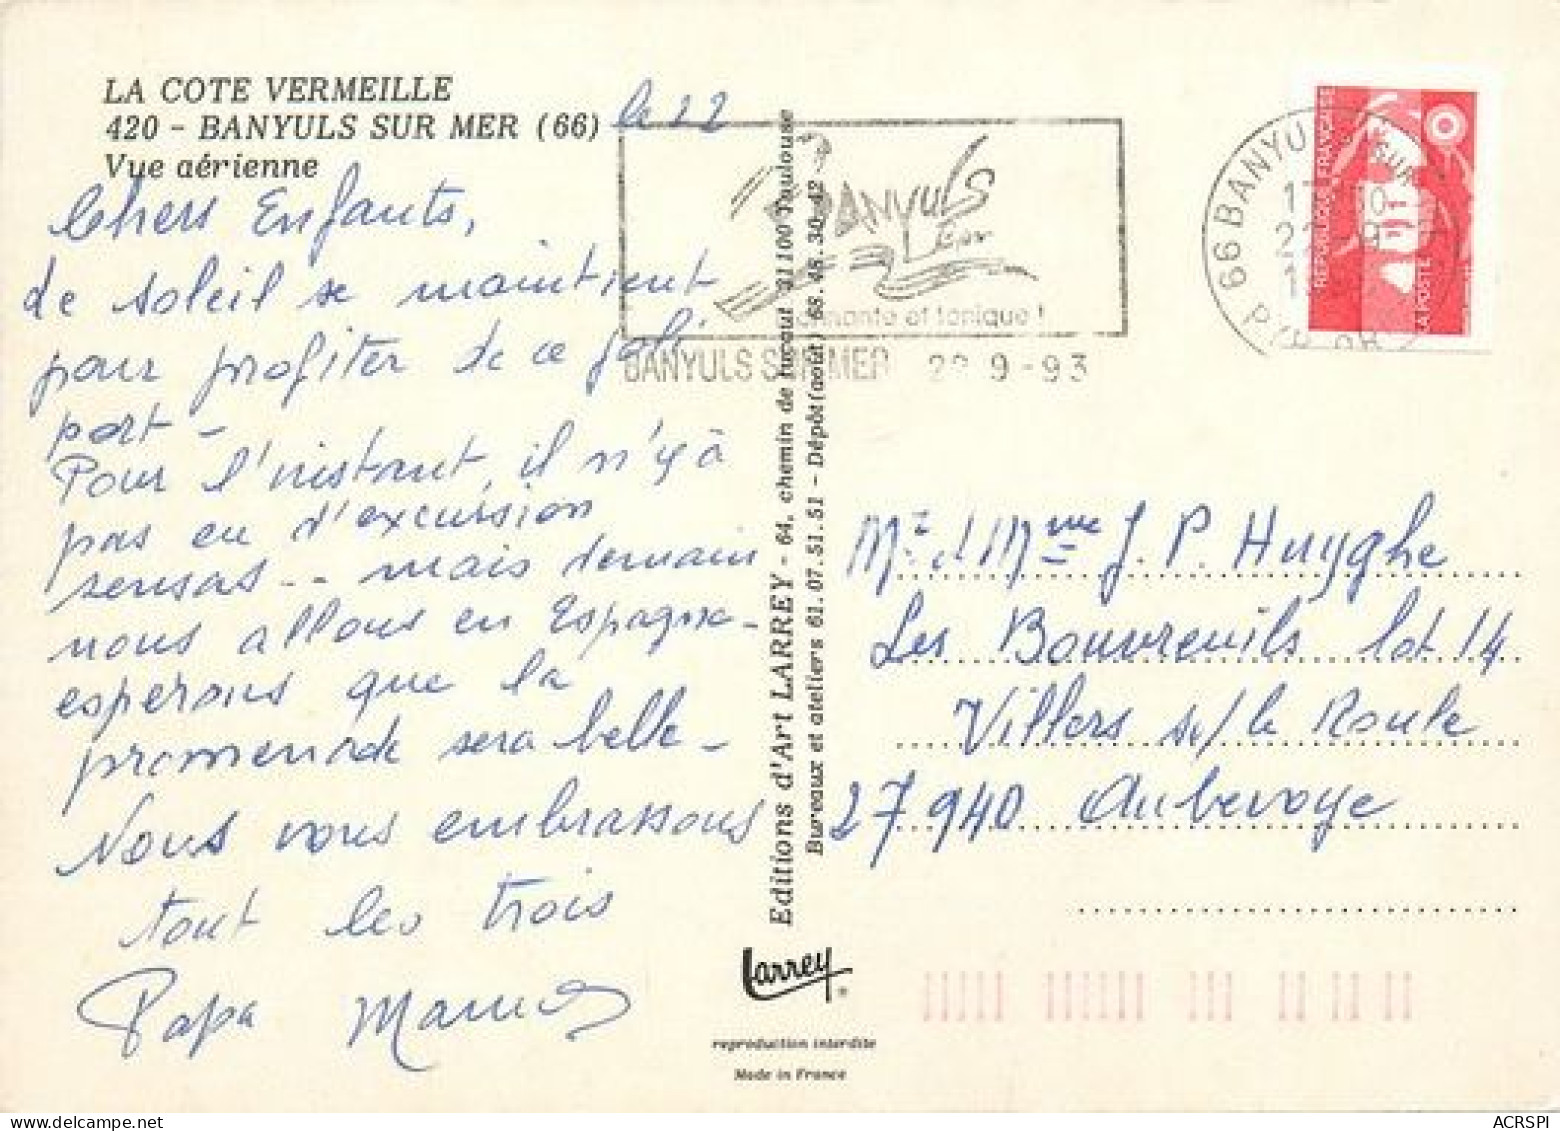 LA COTE VERMEILLE
420 - BANYULS SUR MER (66)
Vue aérienne
le 22
Chers Enfants,
de soleil se maintient
pour profiter de ce joli
port -
Pour l'instant, il n'y à
pas eu d'excursion
sensas -- mais demain
nous allons en Espagne -
esperons que la
promenade sera belle -
Nous vous embrassons
tout les trois
Papa Maman
BANYULS
et tonique !
BANYULS SUR MER 22 9 - 93
Editions d'Art LARREY - 64, chemin de 31100 Toulouse
Bureaux et ateliers 61.07.51.51 - Dépôt (août) 68.48.30.42
Larrey
®
reproduction interdite
Made in France
66 BANYULS SUR
REPUBLIQUE FRANÇAISE
LA POSTE
Mr. et Mme J. P. Huyghe
Les Bouvreuils lot 14
Villers s/ le Roule
27940 Aubevoye
ACRSPI